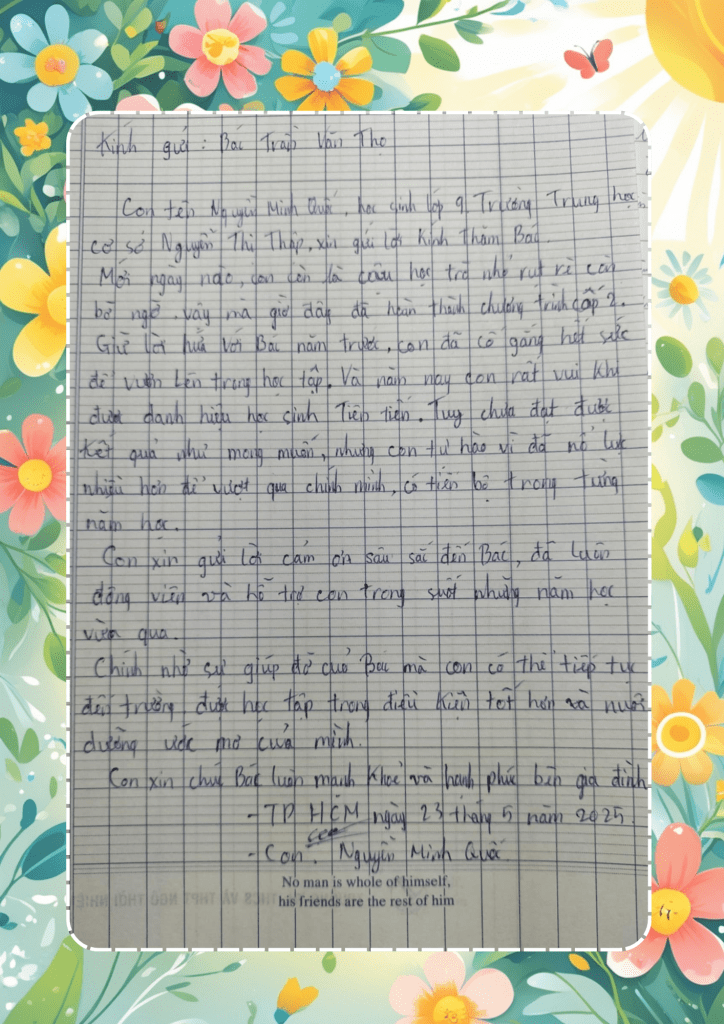 Kính gửi : Bác Trần Văn Thọ
Con tên Nguyễn Minh Quốc, học sinh lớp 9 Trường Trung học
cơ sở Nguyễn Thị Thập, xin gửi lời Kính Thăm Bác.
Mới ngày nào, con còn là cậu học trò nhỏ rụt rè còn
bỡ ngỡ. vậy mà giờ đây đã hoàn thành chương trình cấp 2.
Giữ lời hứa với Bác năm trước, con đã cố gắng hết sức
để vươn lên trong học tập. Và năm nay con rất vui khi
được danh hiệu học sinh Tiên tiến. Tuy chưa đạt được
kết quả như mong muốn, nhưng con tự hào vì đã nỗ lực
nhiều hơn để vượt qua chính mình, có tiến bộ trong từng
năm học.
Con xin gửi lời cảm ơn sâu sắc đến Bác, đã luôn
động viên và hỗ trợ con trong suốt những năm học
vừa qua.
Chính nhờ sự giúp đỡ của Bác mà con có thể tiếp tục
đến trường được học tập trong điều kiện tốt hơn và nuôi
dưỡng ước mơ của mình.
Con xin chúc Bác luôn mạnh khoẻ và hạnh phúc bên gia đình
- TP HCM ngày 23 tháng 5 năm 2025.
- Con. Nguyễn Minh Quốc
No man is whole of himself,
his friends are the rest of him